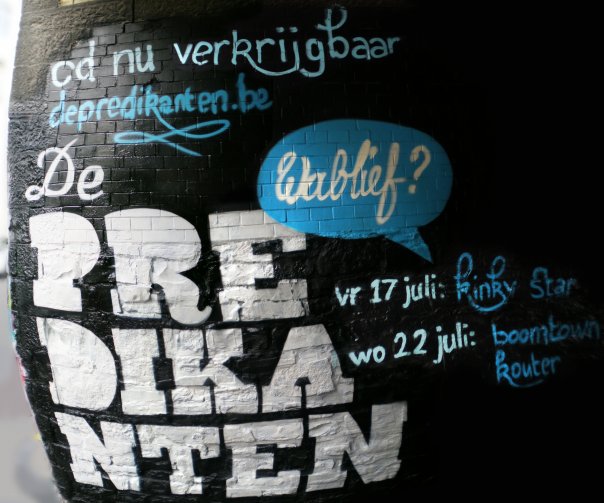 cd nu verkrijgbaar
depredikanten.be
De
Wablief?
PRE
DIKA
NTEN
vr 17 juli: kinky star
wo 22 juli: boomtown
kouter